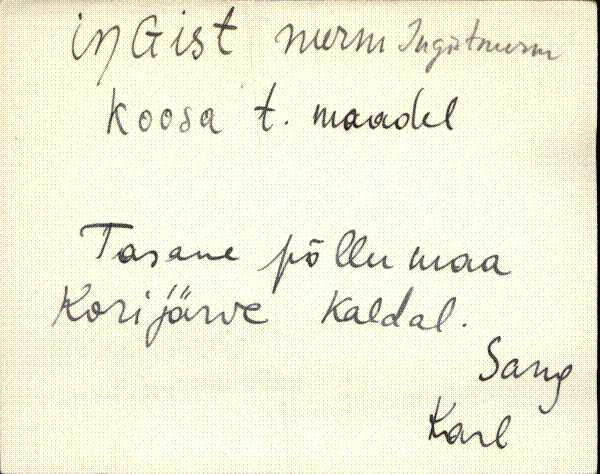 iŋGist nurm Ingistnurm
Koosa t. maadel
Tasane põllumaa
Korijärve Kaldal.
Sang
Karl